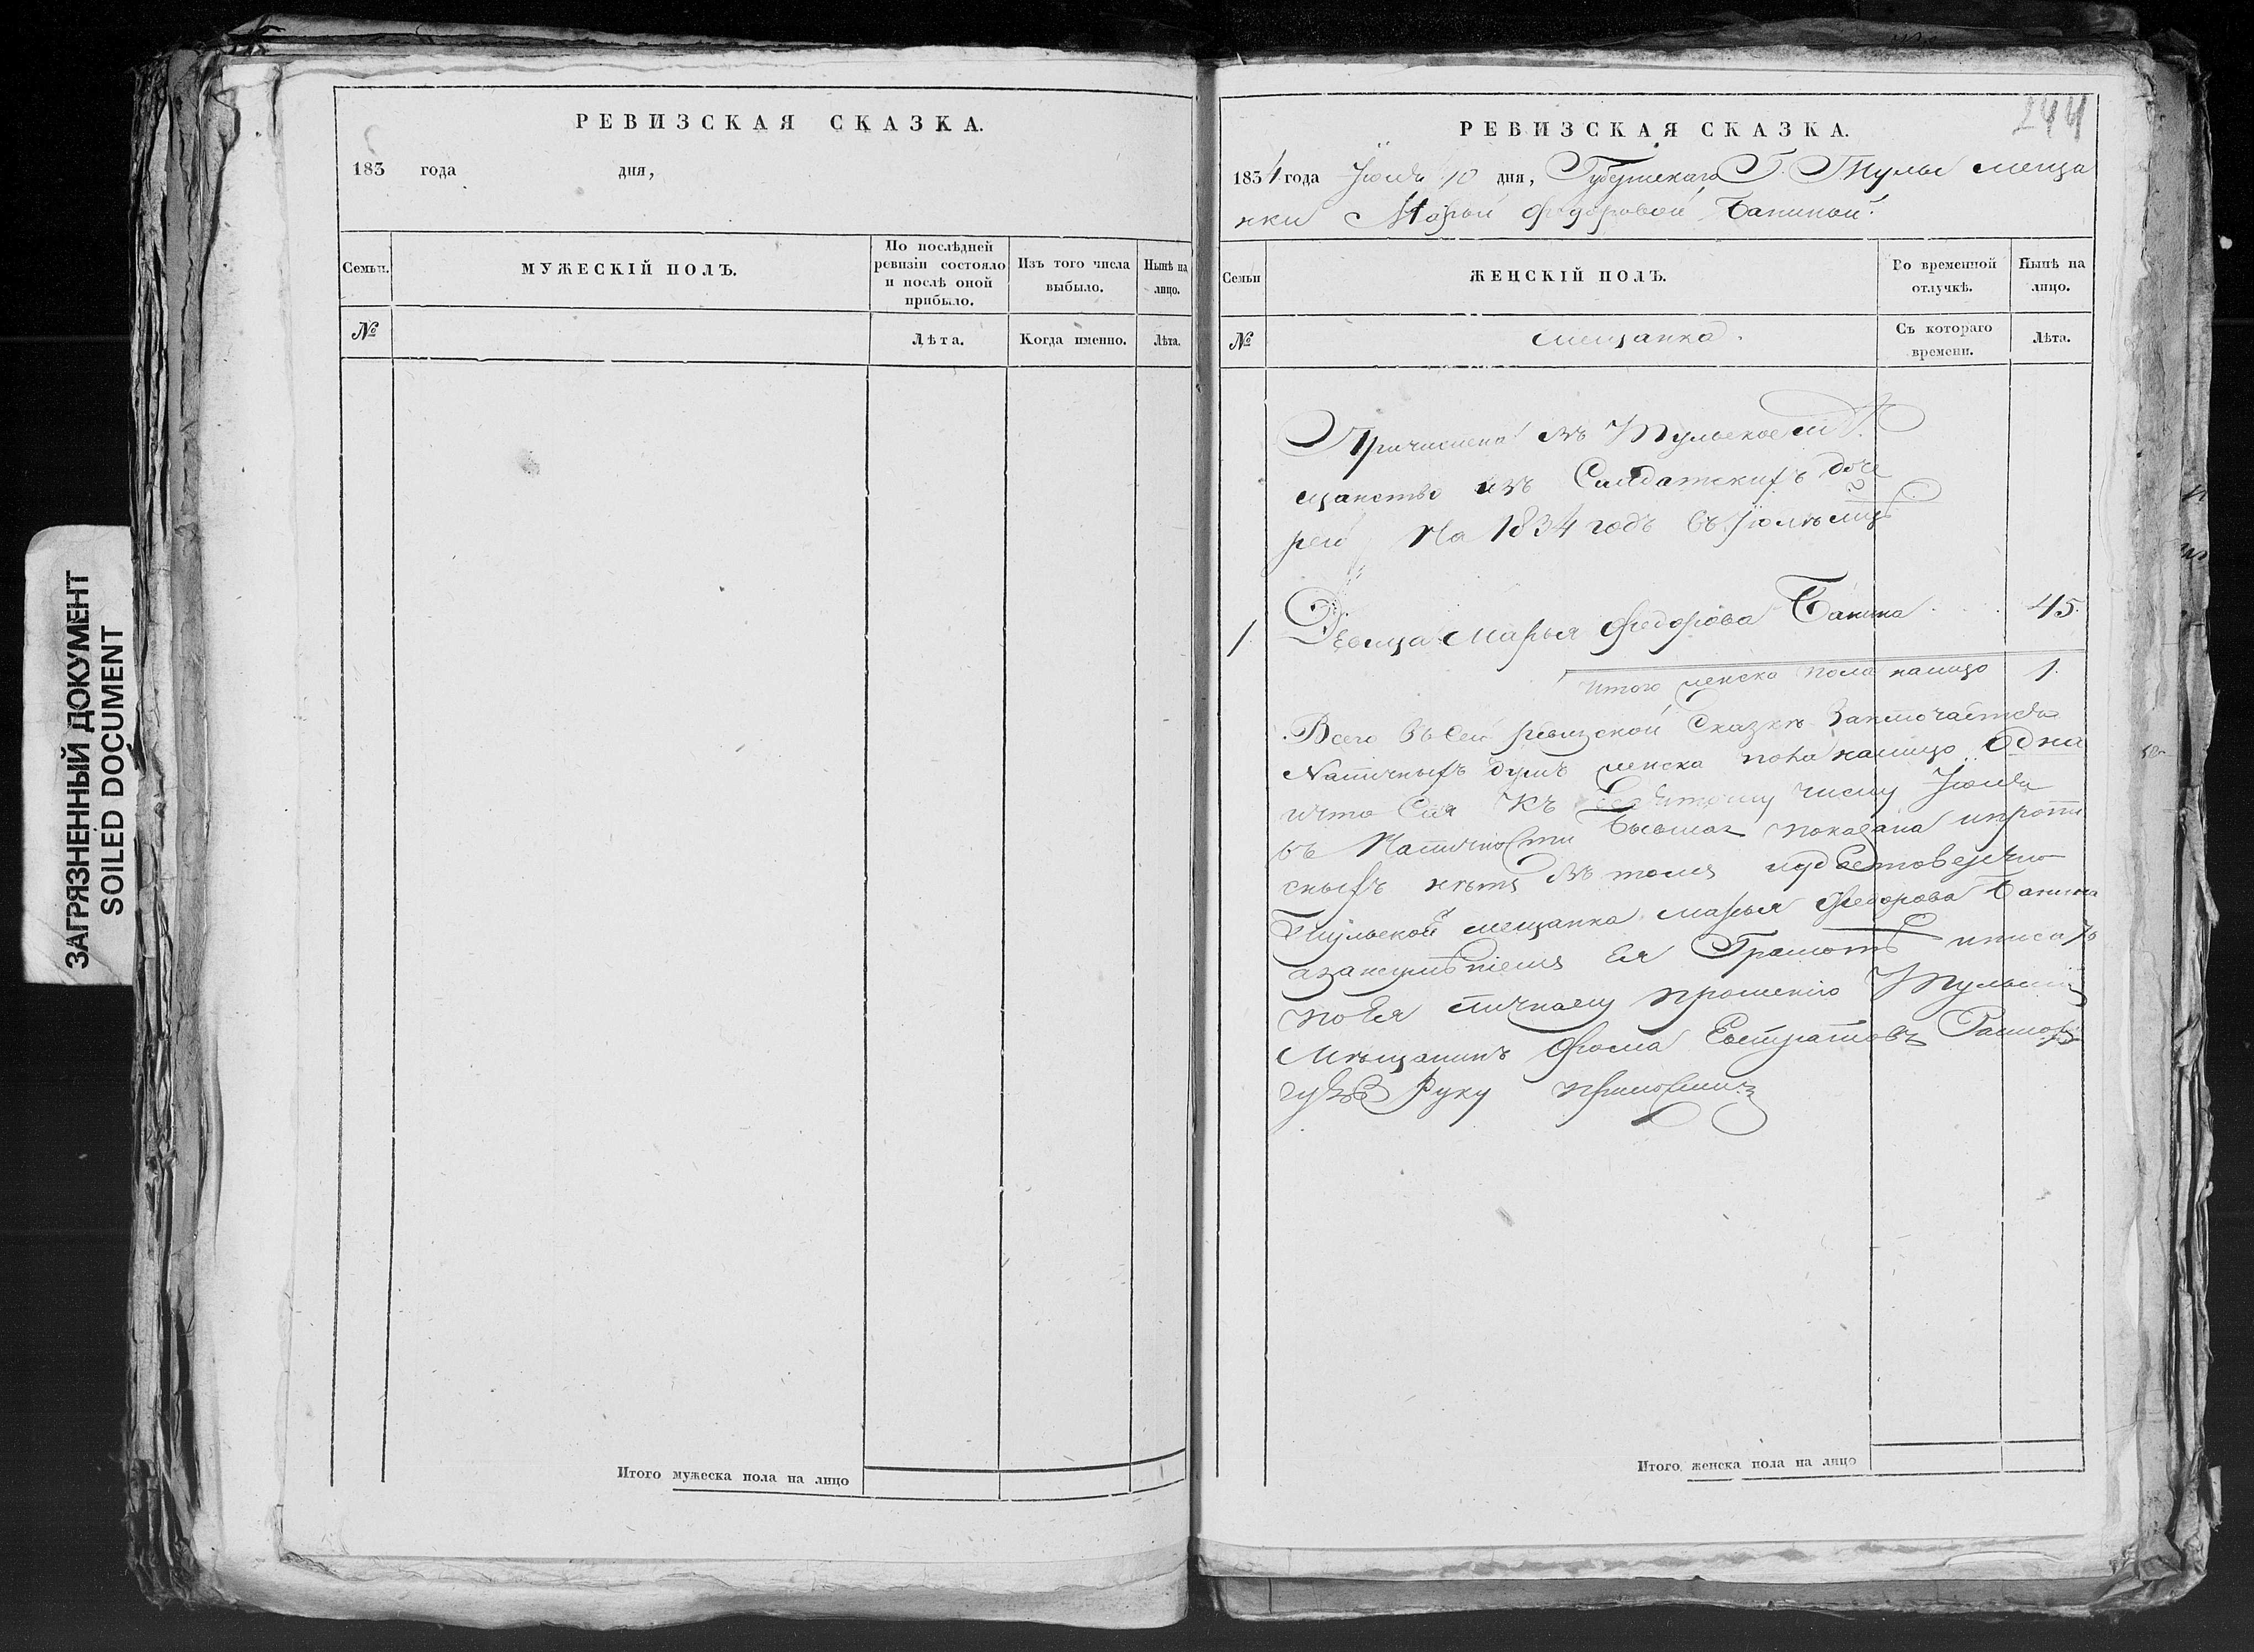 РЕВИЗСКАЯ СКАЗКА.
183 года дня,
Семьи.
МУЖЕСКІЙ ПОЛЪ.
По послѣдней ревизіи состояло и послѣ оной прибыло.
Изъ того числа выбыло.
Нынѣ на лицо.
№
Лѣта.
Когда именно.
Лѣта.
Итого мужеска пола на лицо
244
РЕВИЗСКАЯ СКАЗКА.
1834 года Іюля 10 дня, Губернскаго Г. Тулы меща
нки Марьи Федоровой Баниной.
Семьи
ЖЕНСКІЙ ПОЛЪ.
Во временной отлучкѣ.
Нынѣ на лицо.
№
мещанка.
Съ котораго времени.
Лѣта.
Причислена въ Тульское м
щанство изъ Салдатскихъ доче
рей На 1834 годъ въ Іюлѣ мцѣ
1. Девица Марья Федорова Банина 45.
итого женска пола налицо 1.
Всего въ сей ревизской Сказкѣ Заключается
Наличныхъ душъ женска пола налицо Одна
что Сія къ числу Іюля
въ Наличности показана ипроти
сныхъ нѣтъ въ томъ иудостоверяю
Тульской мещанка Марья Федорова Банина
азанеумѣніемъ Ея Грамотѣ иписать
по Ея личному прошенію Тульской
Мѣщанинъ Фома Евстратовъ
руку приложилъ
Итого женска пола на лицо
ЗАГРЯЗНЕННЫЙ ДОКУМЕНТ
SOILED DOCUMENT